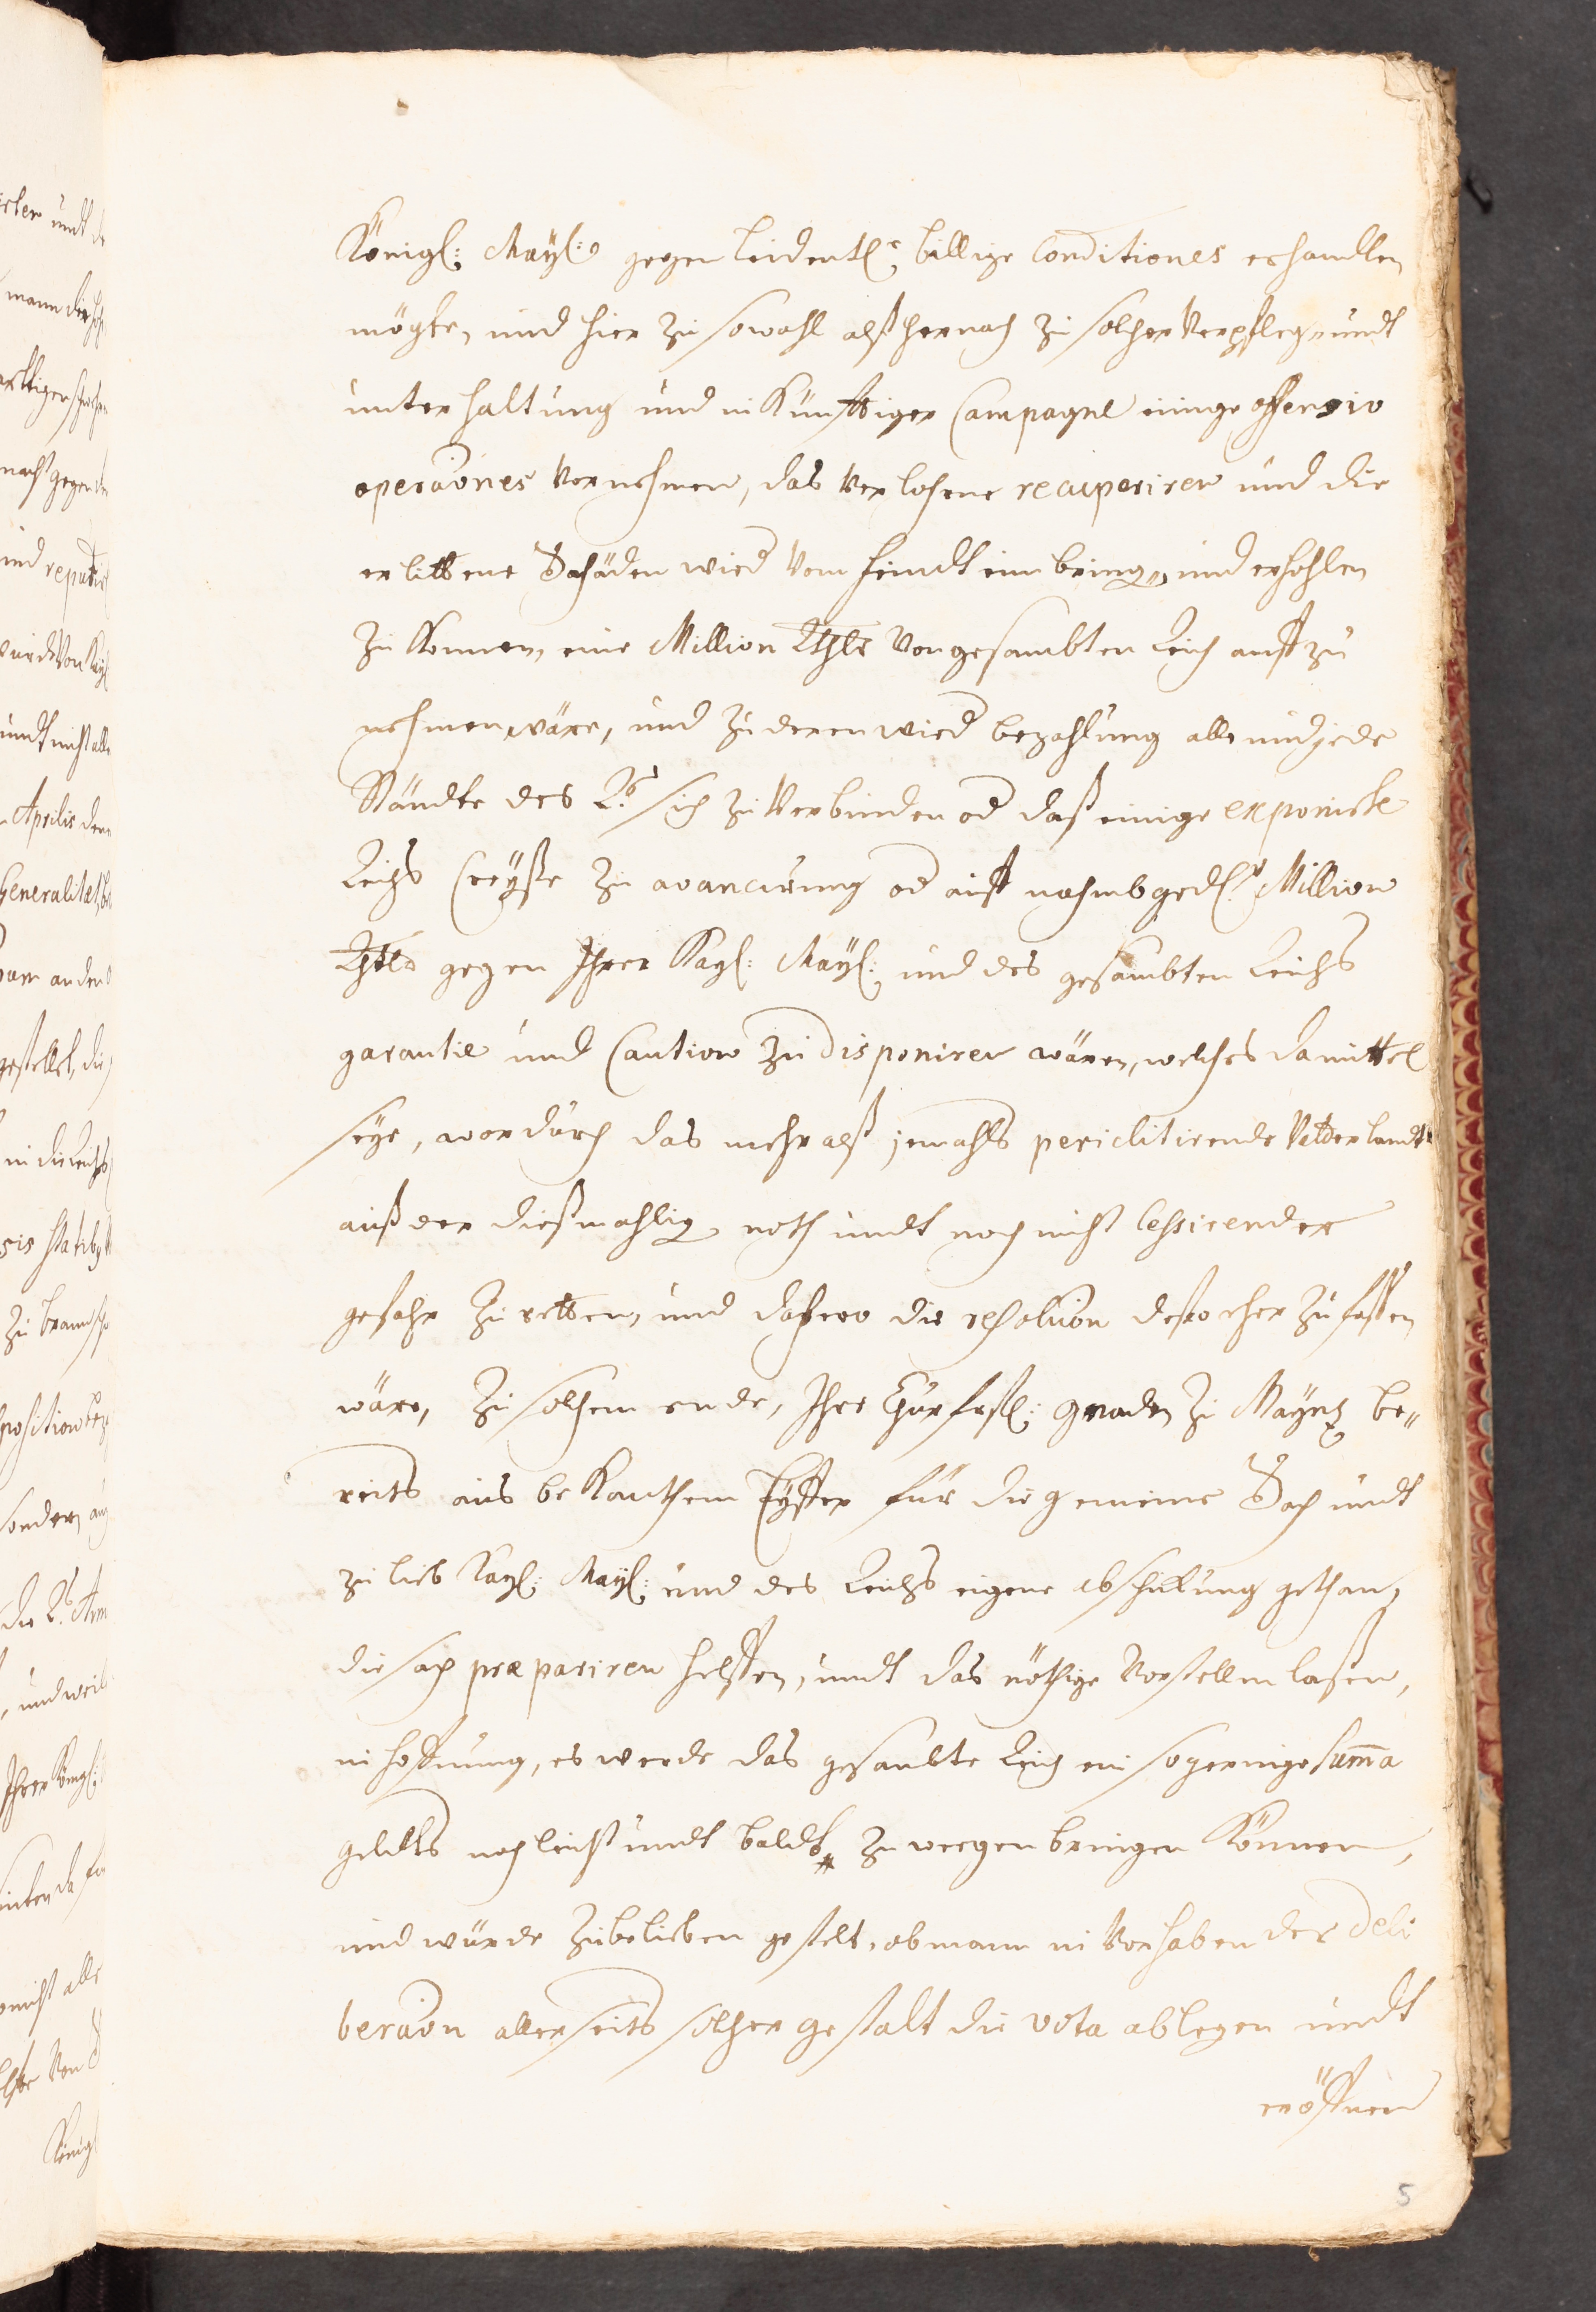 Königl: Mayl: gegen leidentl: billige Conditiones erhandlen
mögte, und hier zu sowohl alß hernach zu solcher Verpfleg: undt
unterhaltung und in Künfftiger Campagne einige offensiv
operaōnes Vornehmen, das Verlohrene recuperiren und die
erlittene Schäden wied Vom feindt einbring, und erhohlen
zu Konnen, eine Million Rthlr Von gesambten Reich auff zu
nehmen wäre, und zu deren wied bezahlung alle und jede
Ständte des R: sich zu Verbinden od daß einige exponirte
Reichs Creyße zu avancirung od auff nahmb gedl: Million
Rthlr gegen Ihrer Kayl: Mayl: und des gesambten Reichs
garantie und Caution zu disponiren wären, welches da mittel
seye, wordurch das mehr alß jemahls periclitirende Vatterlandt
auß der dießmahlig noth undt noch nicht Cessirender
gefahr zu retten, und dahero die resoluōn desto eher zu fassen
wäre, zu solchem ende, Ihre Churfrstl: gnaden zu Mayntz be„
reits aus bekanthem Eyffer für die gemeine Sach undt
zu lieb Kayl: Mayl: und des Reichs eigene abschickung gethan,
die sach præpariren helffen, undt das nöthige Vorstellen laßen,
in hoffnung, es werde das gesambte Reich ein so geringe summa
geldts noch leicht undt baldt zu weegen bringen Können,
und würde zu belieben gestelt, ob mann in Vorhaben der deli
beraōn allerseits solcher gestalt die vota ablegen undt
eröffnen
5